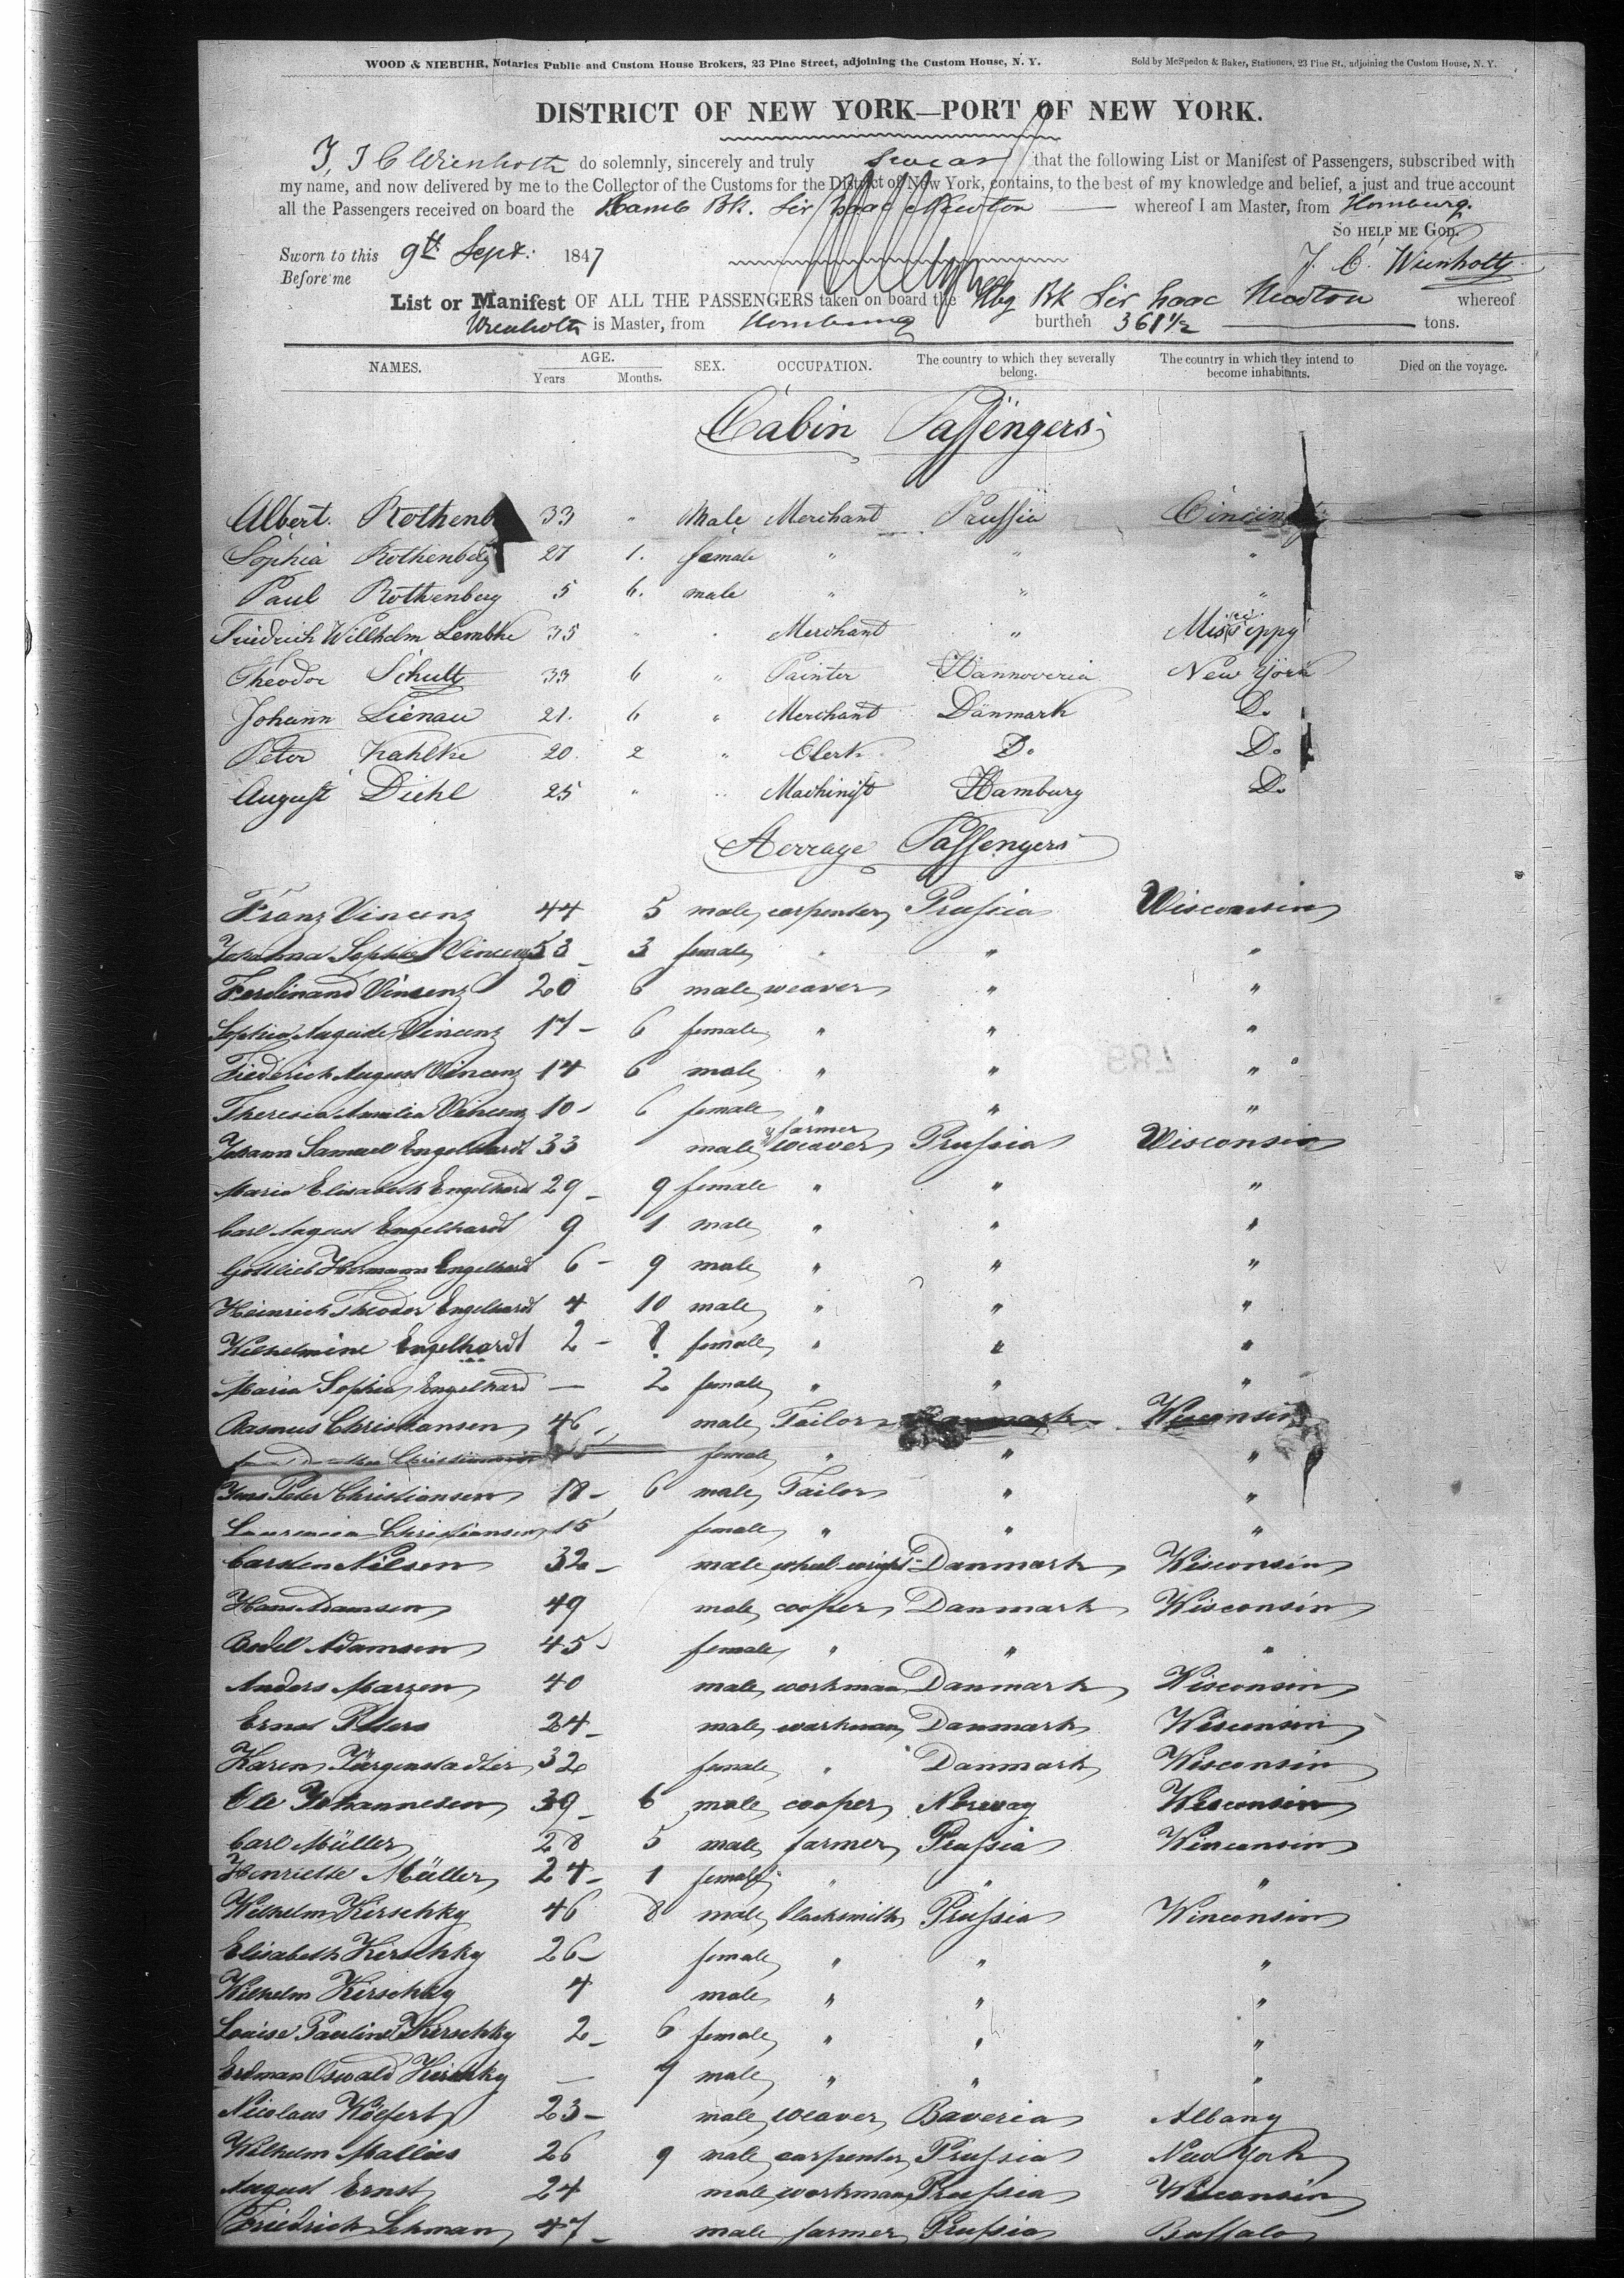 WOOD & NIEBUHR, Notaries Public and Custom House Brokers, 23 Pine Street, adjoining the Custom House, N. Y. Sold by McSpedon & Baker, Stationers, 23 Pine St., adjoining the Custom House, N. Y.
DISTRICT OF NEW YORK—PORT OF NEW YORK.
I, J C Wienholtz do solemnly, sincerely and truly swear that the following List or Manifest of Passengers, subscribed with
my name, and now delivered by me to the Collector of the Customs for the District of New York, contains, to the best of my knowledge and belief, a just and true account
all the Passengers received on board the Hamb Bk. Sir Isaac Newton whereof I am Master, from Hamburg.
SO HELP ME GOD.
Sworn to this 9th Sept. 1847 J. C. Wienholtz
Before me
List or Manifest OF ALL THE PASSENGERS taken on board the Hbg Bk Sir Isaac Newton whereof
Wienholtz is Master, from Hamburg burthen 361 1/2 tons.
NAMES. AGE. Years Months. SEX. OCCUPATION. The country to which they severally belong. The country in which they intend to become inhabitants. Died on the voyage.
Cabin Passengers
Albert Rothenb 33 " Male Merchant Prussia Cincinn
Sophia Rothenberg 27 1. female " " "
Paul Rothenberg 5 6. male " " "
Friedrich Willhelm Lembke 35 " " Merchant " Mississippy
Theodor Schultz 33 6 " Painter Hannoveria New York
Johann Lienau 21. 6 " Merchant Danmark Do
Peter Kahlke 20. 2 " Clerk Do Do
August Diehl 25 " " Machinist Hamburg Do
Steerage Passengers
Franz Vincenz 44 5 male carpenter Prussia Wisconsin
Johanna Sophie Vincenz 53 3 female " " "
Ferdinand Vincenz 20 6 male weaver " "
Sophia Auguste Vincenz 17 6 female " " "
Friederich August Vincenz 14 6 male " " "
Theresia Amalia Vincenz 10 6 female " " "
Johann Samuel Engelhardt 33 male farmer & weaver Prussia Wisconsin
Maria Elisabeth Engelhard 29 9 female " " "
Carl August Engelhardt 9 1 male " " "
Gottlieb Hermann Engelhard 6 9 male " " "
Heinrich Theodor Engelhardt 4 10 male " " "
Wilhelmine Engelhardt 2 8 female " " "
Maria Sophia Engelhard — 2 female " " "
Rasmus Christiansen 46 male Tailor Danmark Wisconsin
Christiansen female " " "
Jens Peter Christiansen 18 6 male Tailor " "
Laurencia Christiansen 15 female " " "
Carsten Nilsen 32 male wheel-wright Danmark Wisconsin
Hans Adamsen 49 male cooper Danmark Wisconsin
Bodel Adamsen 45 female " " "
Anders Marzen 40 male workman Danmark Wisconsin
Ernst Peters 24 male workman Danmark Wisconsin
Karen Jürgenstadter 32 female " Danmark Wisconsin
Ole Johannesen 39 6 male cooper Norway Wisconsin
Carl Müller 28 5 male farmer Prussia Winconsin
Henriette Müller 24 1 female " " "
Wilhelm Kirschky 46 8 male blacksmith Prussia Winconsin
Elisabeth Kirschky 26 female " " "
Wilhelm Kirschky 4 male " " "
Louise Pauline Kirschky 2 6 female " " "
Erdman Oswald Kirschky — 9 male " " "
Nicolaus 23 male weaver Baveria Albany
Wilhelm Mallies 26 9 male carpenter Prussia New York
August Ernst 24 male workman Prussia Wisconsin
Friedrich Lehman 47 male farmer Prussia Buffalo